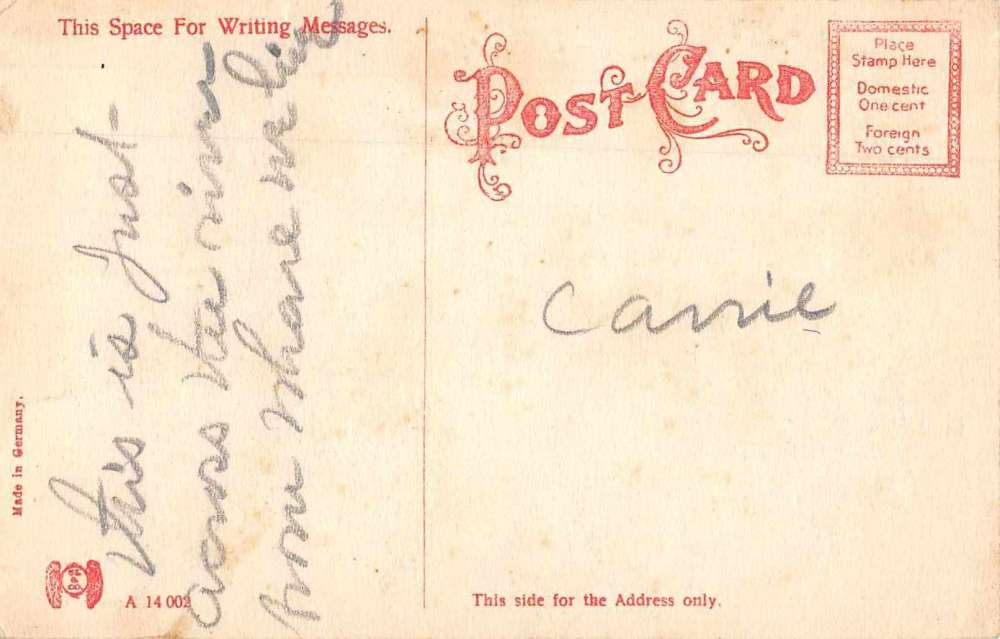 This Space For Writing Messages.
this is just
across the river
from whare we live
POST CARD
Place
Stamp Here
Domestic
One cent
Foreign
Two cents
Carrie
Made in Germany.
A 14 002
This side for the Address only.